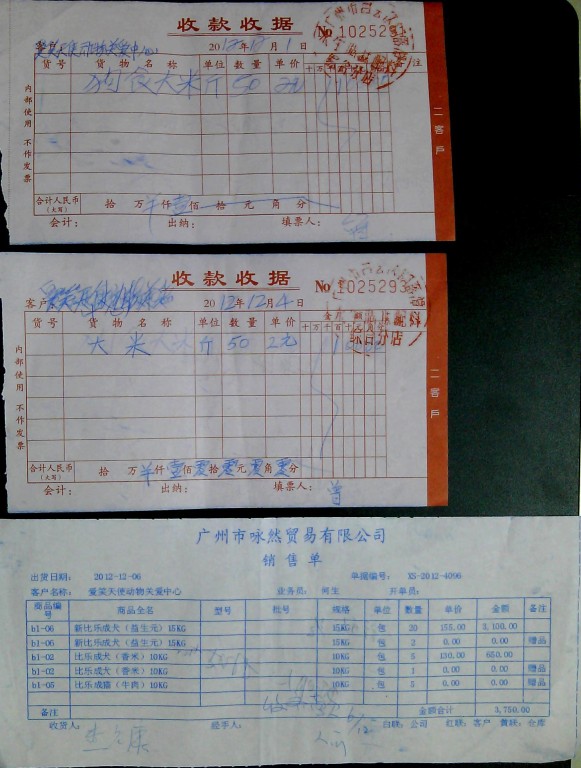 收款收据
№ 1025291
客户 爱笑天使动物关爱中心 2012年12月1日
货号 货物名称 单位 数量 单价 注
狗食大米 斤 50 2元
内部使用 不作发票
二 客户
合计人民币（大写） 拾 万 仟壹佰 拾 元 角 分
会计： 出纳： 填票人：
收款收据
No 1025293
客户 2012年12月4日
货号 货物名称 单位 数量 单价 金额
十万千百十元角分
大米 斤 50 2元
内部使用 不作发票
二 客户
合计人民币（大写） 拾 万 仟壹佰零拾零元零角零分
会计： 出纳： 填票人：曾
广州市咏然贸易有限公司
销售单
出货日期： 2012-12-06 单据编号： XS-2012-4096
客户名称： 爱笑天使动物关爱中心 业务员： 何生 开单员：
商品编号 商品全名 型号 批号 规格 单位 数量 单价 金额 备注
b1-06 新比乐成犬（益生元）15KG 15KG 包 20 155.00 3,100.00
b1-06 新比乐成犬（益生元）15KG 15KG 包 2 0.00 0.00 赠品
b1-02 比乐成犬（香米）10KG 10KG 包 5 130.00 650.00
b1-02 比乐成犬（香米）10KG 10KG 包 1 0.00 0.00 赠品
b1-05 比乐成猫（牛肉）10KG 10KG 包 5 0.00 0.00 赠品
备注 金额合计 3,750.00
收货人： 经手人： 白联：公司 红联：客户 黄联：仓库